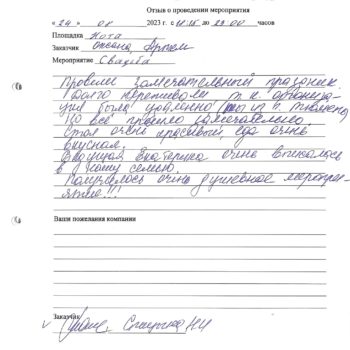 Отзыв о проведении мероприятия
« 24 » 08 2023 г. 11:15 до 23:00 часов
Площадка Нота
Заказчик Оксана, Артем
Мероприятие Свадьба
Провели замечательный праздник.
Долго переживали т.к. организа-
ция была удаленно (мы из г. Тюмень)
Но всё прошло замечательно.
Стол очень красивый, еда очень
вкусная.
Ведущая Екатерина очень вписалась
в нашу семью.
Получилось очень душевное меропри-
ятие!!!
Ваши пожелания компании
Заказчик